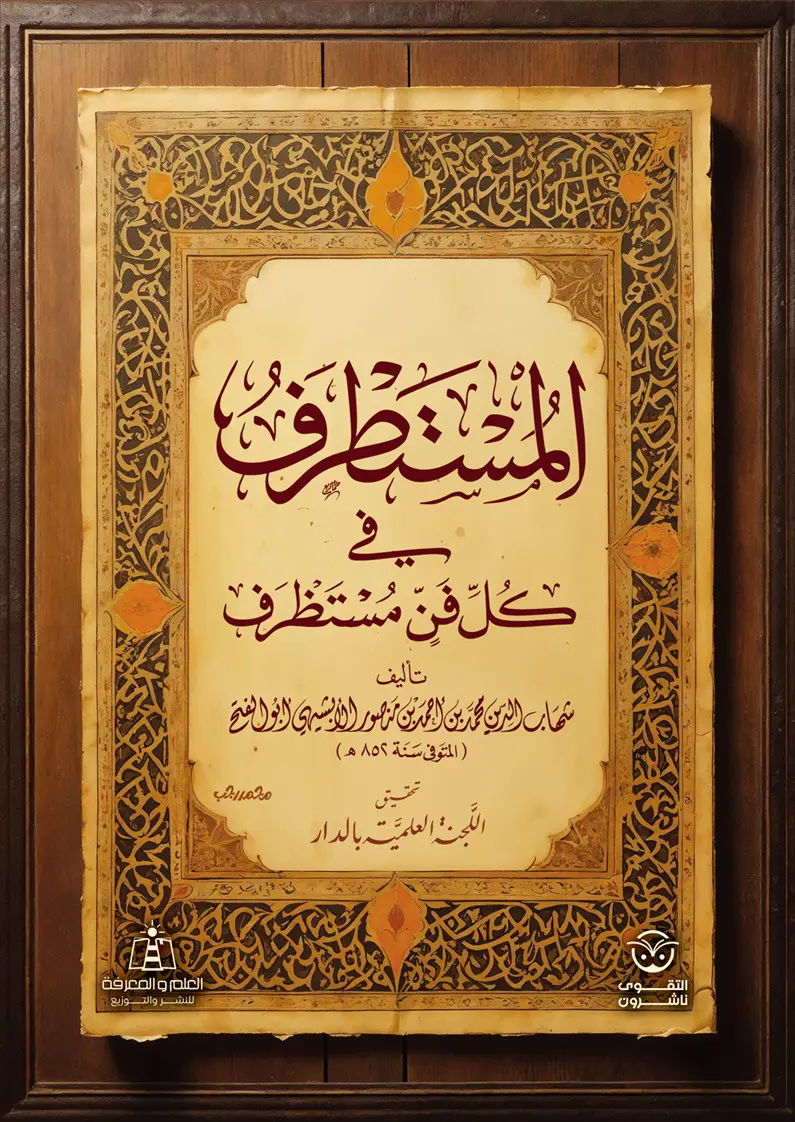 المُسْتَطْرَفُ
في
كُلِّ فَنٍّ مُسْتَظْرَف
تأليف
شهاب الدين محمد بن أحمد بن منصور الأبشيهي أبو الفتح
(المتوفى سَنَة ٨٥٢ هـ)
تحقيق
اللَّجنة العلميَّة بالدار
محمد رجب
العلم والمعرفة
للنشر والتوزيع
التقوى
ناشرون